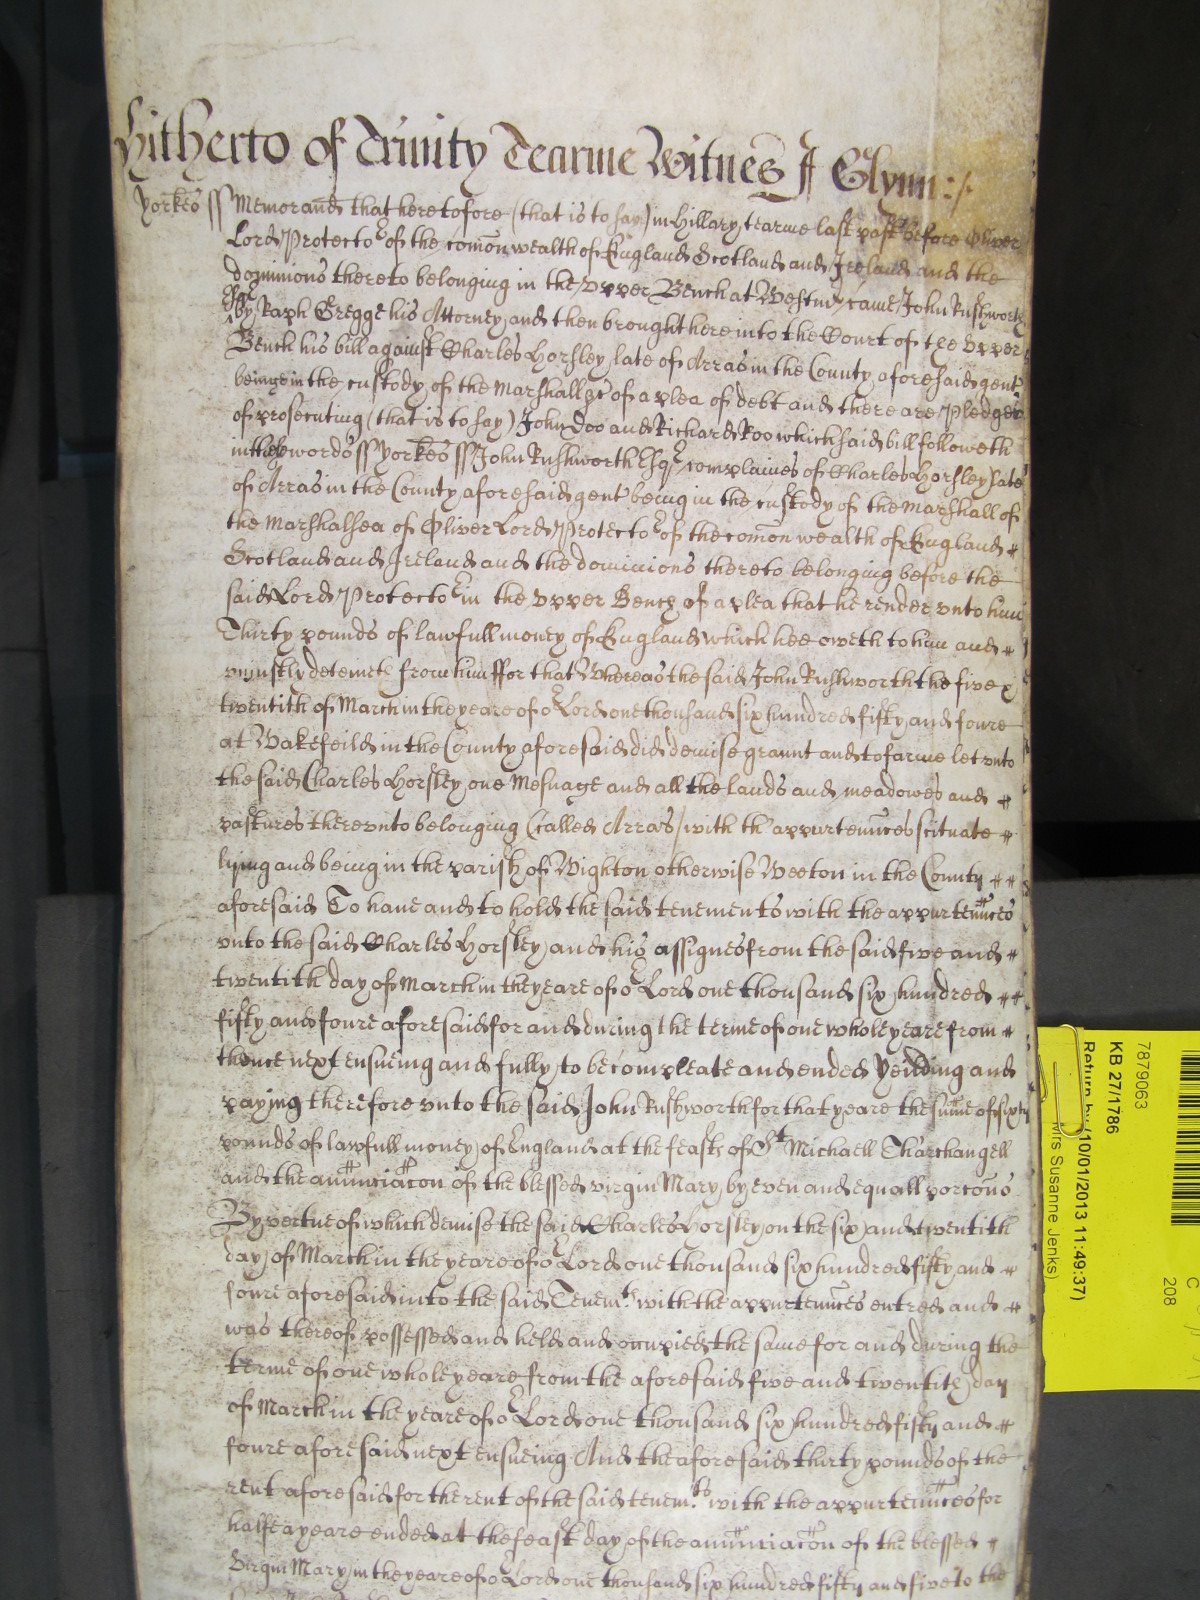 Hitherto of Trinity Tearme Witnes J Glynn:/.
Yorkes ss Memorand that heretofore (that is to say) in Hillary tearme last past before Oliver
Lord Protector of the comon wealth of England Scotland and Ireland and the
dominions thereto belonging in the Upper Bench at Westmr came John Rushworth
Esqr by Raph Gregge his Attorney and then brought here into the Court of the Upper
Bench his bill against Charles Horsley late of Arras in the County aforesaid gent
beinge in the custody of the Marshall &c of a plea of debt and there are Pledges
of prosecuting (that is to say) John Doo and Richard Roo which said bill followeth
in thes words ss Yorkes ss John Rushworth Esqr complaines of Charles Horsley late
of Arras in the County aforesaid gent being in the custody of the Marshall of
the Marshalsea of Oliver Lord Protector of the comon wealth of England
Scotland and Ireland and the dominions thereto belonging before the
said Lord Protector in the Upper Bench of a plea that he render unto him
Thirty pounds of lawfull money of England which hee oweth to him and
uniustly deteineth from him ffor that Whereas the said John Rushworth the five &
twentith of March in the yeare of or Lord one thousand six hundred fifty and foure
at Wakefeild in the County aforesaid did demise graunt and to farme let unto
the said Charles Horsley one Mesuage and all the lands and meadowes and
pastures thereunto belonging (called Arras) with th'appurtennces scituate
lying and being in the parish of Wighton otherwise Weeton in the County
aforesaid To have and to hold the said tenements with the appurtennces
unto the said Charles Horsley and his assignes from the said five and
twentith day of March in the yeare of or Lord one thousand six hundred
fifty and foure aforesaid for and during the terme of one whole yeare from
thence next ensueing and fully to be compleate and ended Yeilding and
paying therefore unto the said John Rushworth for that yeare the sume of sixty
pounds of lawfull money of England at the feasts of St Michaell Tharchangell
and the anunciacon of the blessed virgin Mary by even and equall porcons
By vertue of which demise the said Charles Horsley on the six and twentith
day of March in the yeare of or Lord one thousand six hundred fifty and
foure aforesaid into the said Tenemts with the appurtennces entred and
was thereof possessed and held and occupied the same for and during the
terme of one whole yeare from the aforesaid five and twentith day
of March in the yeare of or Lord one thousand six hundred fifty and
foure aforesaid next ensueing And the aforesaid thirty pounds of the
rent aforesaid for the rent of the said tenemts with the appurtennces for
halfe a yeare ended at the feast day of the anunciacon of the blessed
Virgin Mary in the yeare of or Lord one thousand six hundred fifty and five to the
7879063
KB 27/1786
Return by (10/01/2013 11:49:37)
Mrs Susanne Jenks)
C
208